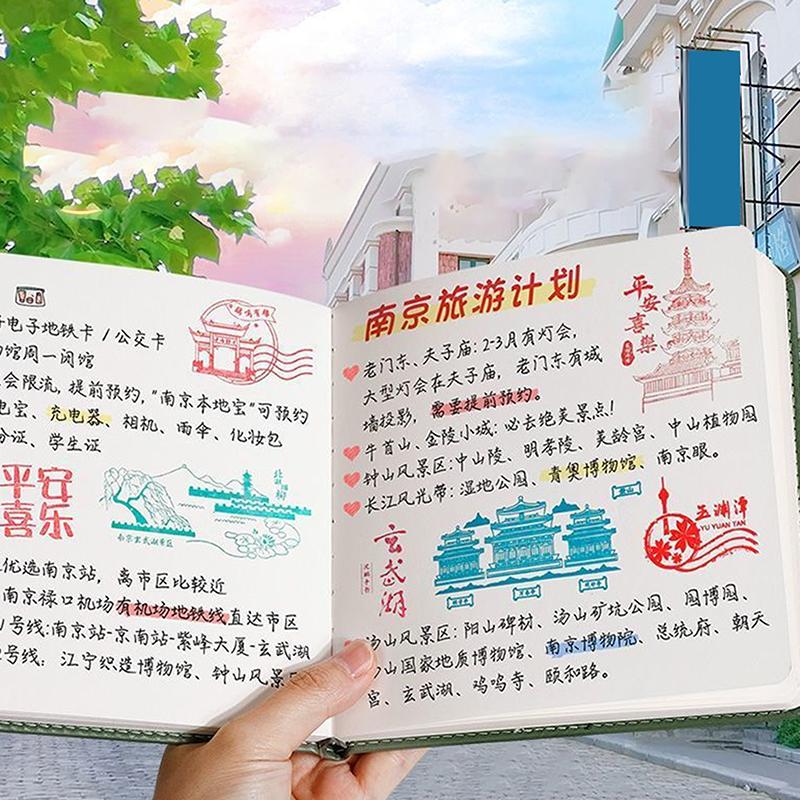 电子地铁卡 / 公交卡
馆周一闭馆
会限流, 提前预约, "南京本地宝"可预约
电宝、充电器、相机、雨伞、化妆包
份证、学生证
平安
喜乐
南京玄武湖景区
优选南京站, 离市区比较近
南京禄口机场有机场地铁线直达市区
号线:南京站-京南站-紫峰大厦-玄武湖
号线: 江宁织造博物馆、钟山风景区
南京旅游计划
平安喜乐
老门东、夫子庙: 2-3月有灯会,
大型灯会在夫子庙, 老门东有城
墙投影, 需要提前预约。
牛首山、金陵小城: 必去绝美景点!
钟山风景区: 中山陵、明孝陵、美龄宫、中山植物园
长江风光带: 湿地公园、青奥博物馆、南京眼。
玄武湖
玉渊潭
YU YUAN TAN
汤山风景区: 阳山碑材、汤山矿坑公园、园博园、
山国家地质博物馆、南京博物院、总统府、朝天
宫、玄武湖、鸡鸣寺、颐和路。